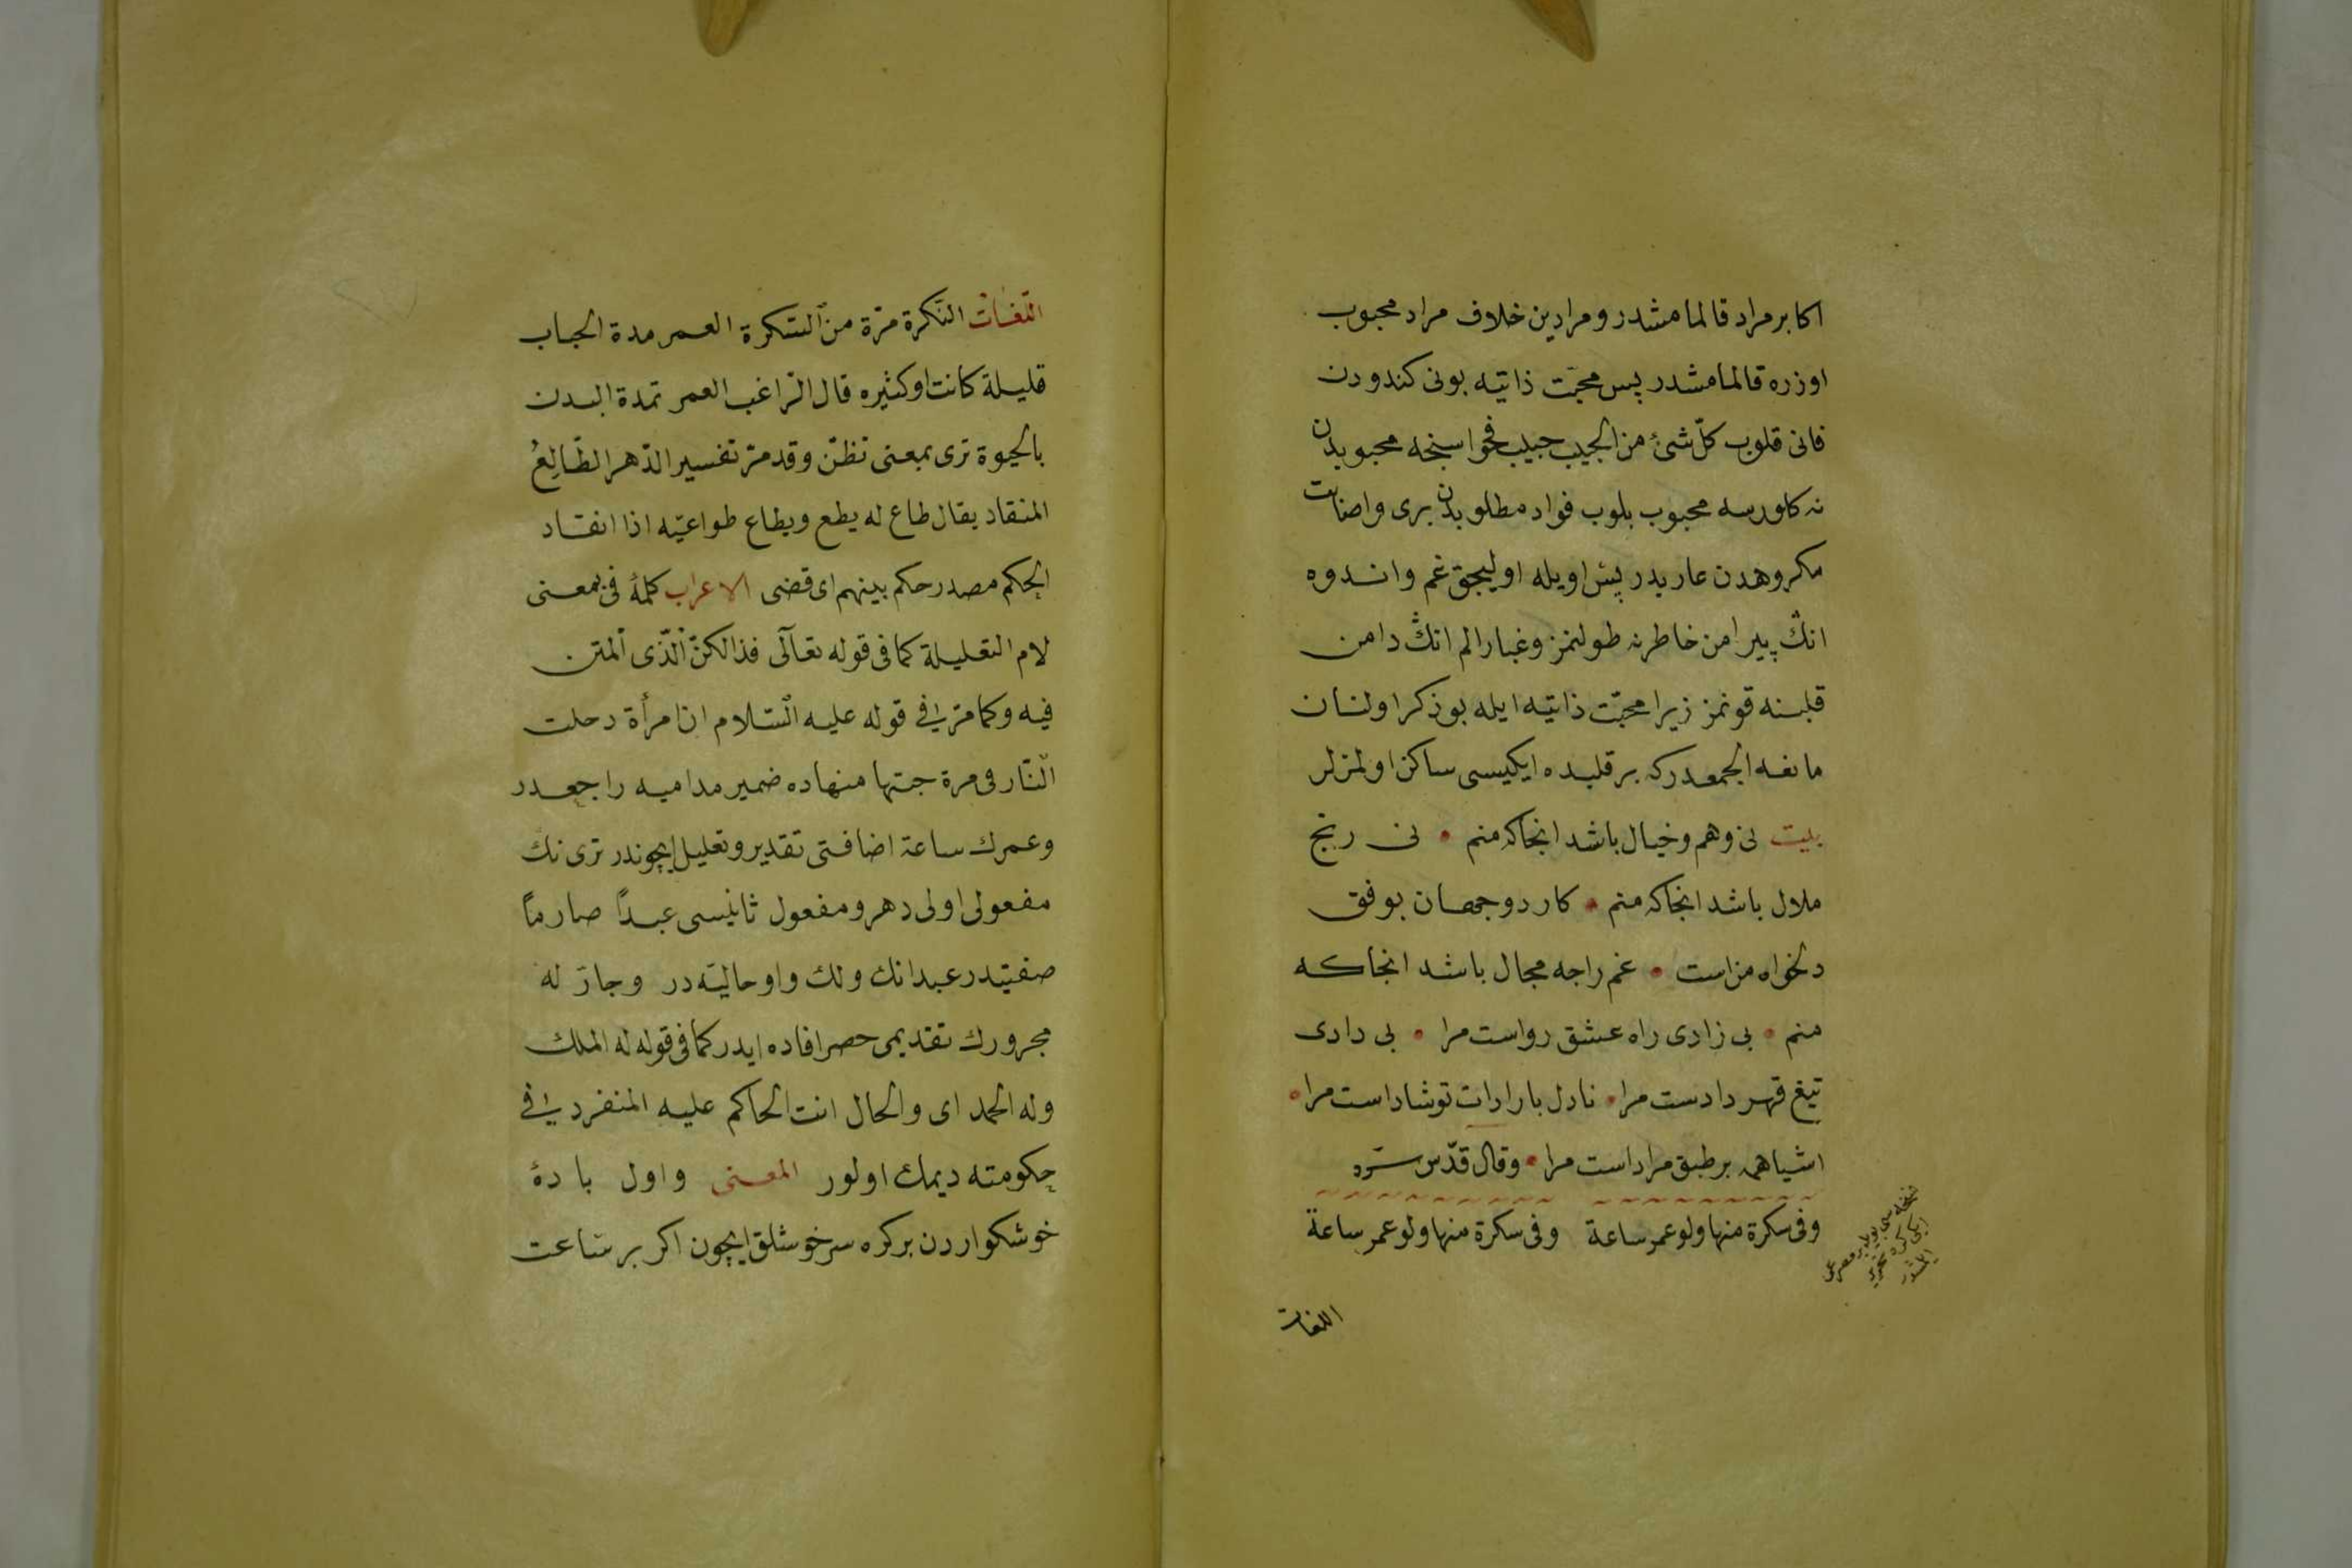 اكابر مراد قالمامشدر و مرادين خلاف مراد محبوب
اوزره قالمامشدر پس محبّت ذاتيه بونى كندودن
فانى قلوب كلّ شئ من الحبيب حبيب فحواسنجه محبوبدن
نه كلورسه محبوب بلوب فواد مطلوبدن برى واضافت
مكروهدن عاريدر پس اويله اوليجق غم واندوه
انڭ پيرامن خاطرنه طولنمز وغبار الم انڭ دامن
قلبنه قونمز زيرا محبّت ذاتيه ايله بو ذكر اولنان
مانعة الجمعدر كه بر قلبده ايكيسى ساكن اولمزلر
بيت نى وهم وخيال باشد انجاكه منم • نى رنج
ملال باشد انجاكه منم • كار دو جهان بوفق
دلخواه من است • غم را جه مجال باشد انجاكه
منم • بى زادى راه عشق رواست مرا • بى دادى
تيغ قهر دادست مرا • نادل بارادات تو شاد است مرا •
اشيا همه بر طبق مراد است مرا • وقال قدّس سرّه
وفى سكرة منها ولو عمر ساعة وفى سكرة منها ولو عمر ساعة
نسخه سى بويله بر مصرعى
ايكى كره تحرير
ايلمشدر
اللغات
اللغات السّكرة مرّة من السّكرة العمر مدة الحياب
قليلة كانت او كثيره قال الرّاغب العمر تمدة البدن
بالحيوة ترى بمعنى تظنّ وقد مرّ تفسير الدّهر الطّالعُ
المنقاد يقال طاع له يطع ويطاع طواعيّه اذا انقاد
الحكم مصدر حكم بينهم اى قضى الاعراب كلمۀ فى بمعنى
لام التعليلة كما فى قوله تعالى فذالكنّ الّذى لمتن
فيه وكما مرّ فى قوله عليه السّلام ان امرأة دحلت
النّار فى مرة جبتها منهاده ضمير مداميه راجعدر
وعمرك ساعة اضافتى تقدير وتعليل ايچوندر ترى نك
مفعولى اولى دهر ومفعول ثانيسى عبداً صارماً
صفتيدر عبدانك ولك واو حاليّه در وجارّ له
مجرورك تقديمى حصر افاده ايدر كما فى قوله له الملك
وله الحمد اى والحال انت الحاكم عليه المنفرد فى
حكومته ديمك اولور المعنى واول بادۀ
خوشكواردن بر كره سرخوشلق ايچون اكر بر ساعت